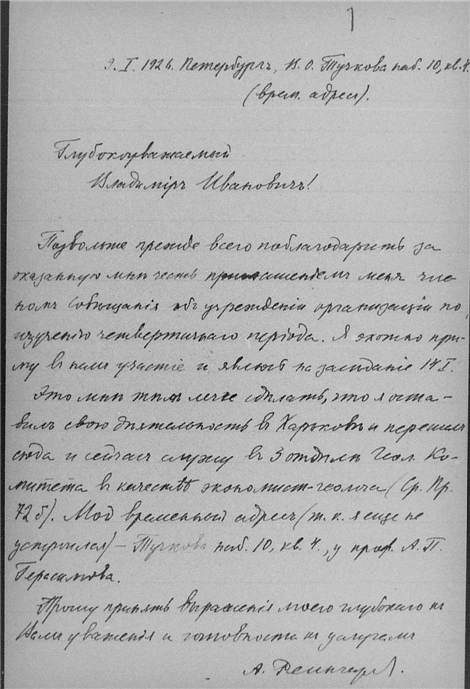 1
9. I. 192 г. Петербургъ, В. О. Тучкова наб. 10, кв. 4.
(врем. адрес).
Глубокоуважаемый
Владиміръ Ивановичъ!
Позвольте прежде всего поблагодарить за
оказанную мнѣ честь приглашеніемъ меня чле-
номъ Совѣщанія объ учрежденіи организаціи по
изученію четвертичнаго періода. Я охотно при-
му в немъ участіе и явлюсь на засѣданіе 14 I.
Это мнѣ тѣмъ легче сдѣлать, что я оста-
вилъ свою дѣятельность в Харьковѣ и перешелъ
сюда и сейчасъ служу в 3 отдѣлѣ Геол. Ко-
митета в качествѣ экономист-геолога (Ср. Пр.
72 б). Мой временный адресъ (т. к. я еще не
устроился) – Тучкова наб. 10, кв. 4, у проф. А. П.
Герасимова.
Прошу принять выраженія моего глубокаго къ
Вамъ уваженія и готовности къ услугамъ
А.